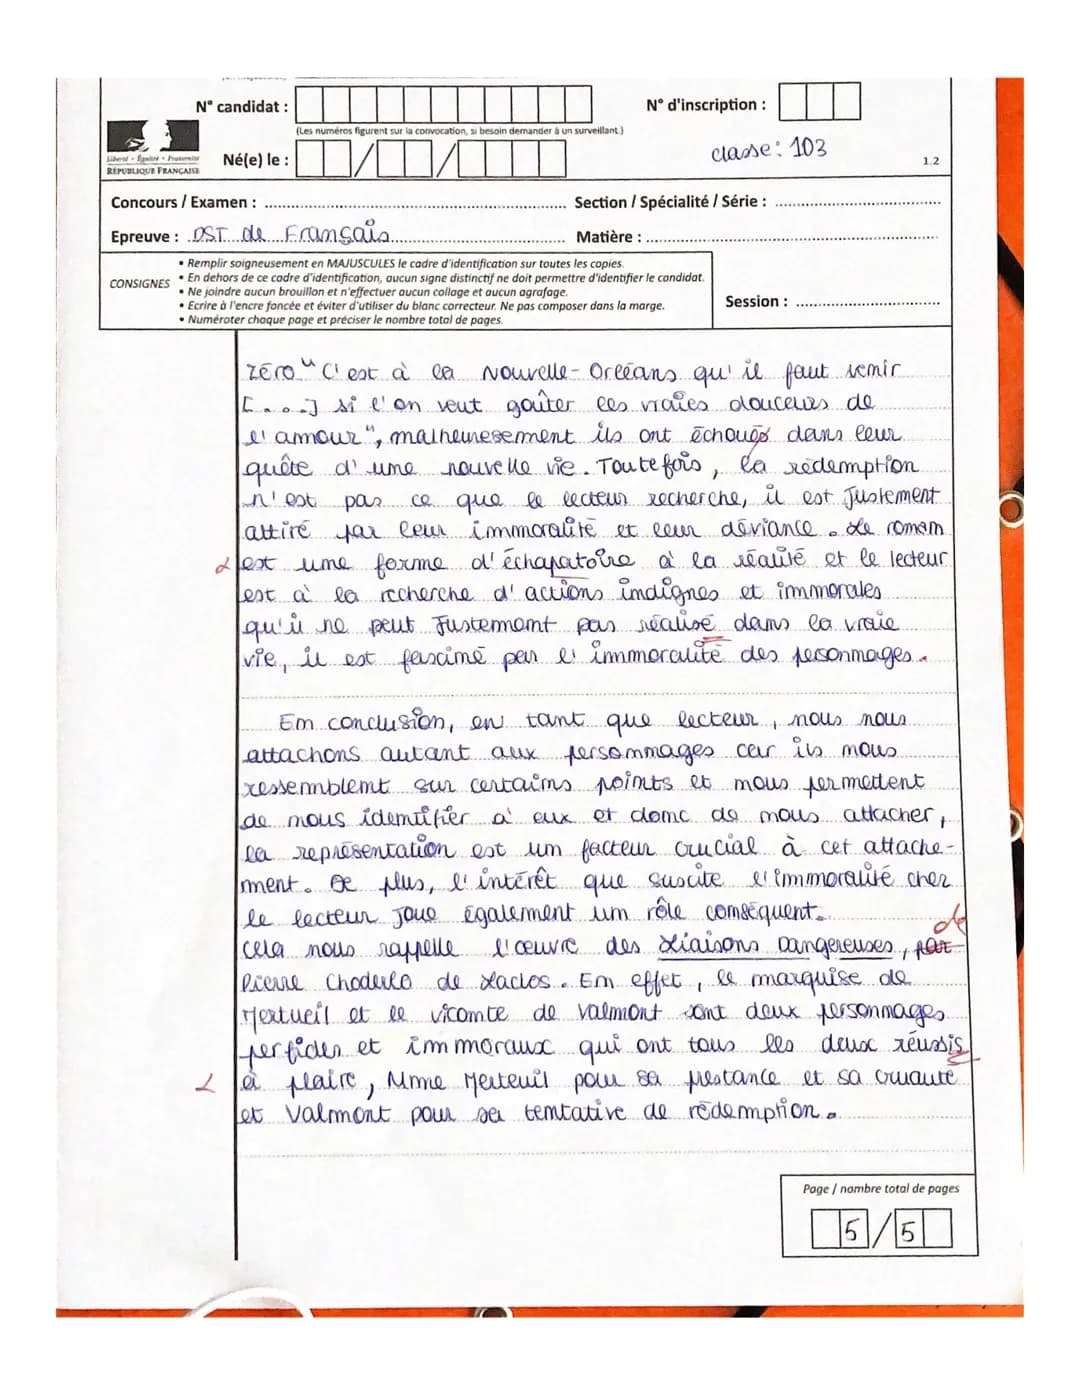 N° candidat :
N° d'inscription :
(Les numéros figurent sur la convocation, si besoin demander à un surveillant.)
classe: 103
Liberté • Égalité • Fraternité
RÉPUBLIQUE FRANÇAISE
Né(e) le : / /
1.2
Concours / Examen : Section / Spécialité / Série :
Epreuve : DST de Français Matière :
CONSIGNES
• Remplir soigneusement en MAJUSCULES le cadre d'identification sur toutes les copies.
• En dehors de ce cadre d'identification, aucun signe distinctif ne doit permettre d'identifier le candidat.
• Ne joindre aucun brouillon et n'effectuer aucun collage et aucun agrafage.
• Ecrire à l'encre foncée et éviter d'utiliser du blanc correcteur. Ne pas composer dans la marge.
• Numéroter chaque page et préciser le nombre total de pages.
Session :
zéro "C'est à la Nouvelle-Orléans qu'il faut venir
[...] si l'on veut goûter les vraies douceurs de
l'amour", malheuresement ils ont échoués dans leur
quête d'une nouvelle vie. Toutefois, la rédemption
n'est pas ce que le lecteur recherche, il est Justement
attiré par leur immoralité et leur déviance. Le roman
est une forme d'échapatoire à la réalité et le lecteur
est à la recherche d'actions indignes et immorales
qu'il ne peut Justement pas réalisé dans la vraie
vie, il est fasciné par l'immoralité des personnages.
En conclusion, en tant que lecteur, nous nous
attachons autant aux personnages car ils nous
ressemblent sur certains points et nous permettent
de nous identifier à eux et donc de nous attacher,
la représentation est un facteur crucial à cet attache-
ment. De plus, l'intérêt que suscite l'immoralité chez
le lecteur Joue également un rôle conséquent.
de
cela nous rappelle l'œuvre des Liaisons Dangereuses, par
Pierre Choderlo de Laclos. En effet, le marquise de
Mertueil et le vicomte de Valmont sont deux personnages
perfides et immoraux qui ont tous les deux réussis
à plaire, Mme Merteuil pour sa prestance et sa cruauté
et Valmont pour sa tentative de rédemption.
Page / nombre total de pages
5 / 5